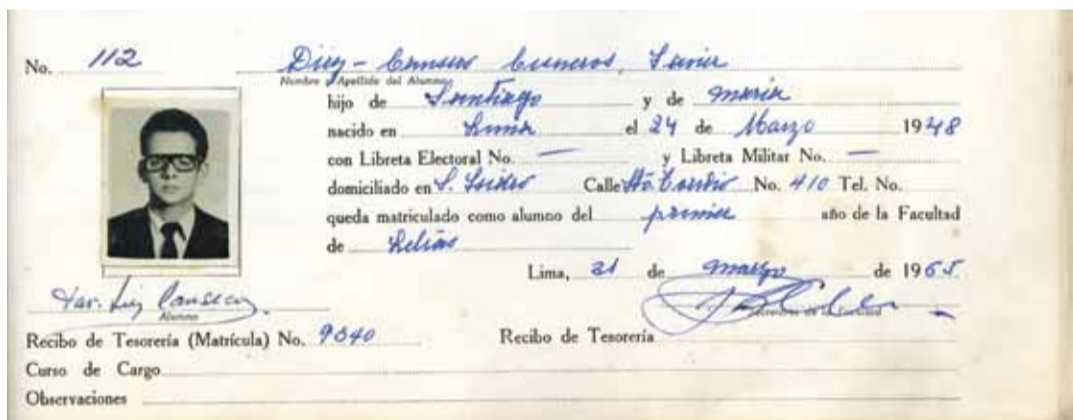 No. 112 Diez-Canseco Cisneros, Javier
Nombre y Apellido del Alumno
hijo de Santiago y de María
nacido en Lima el 24 de Marzo 1948
con Libreta Electoral No. — y Libreta Militar No. —
domiciliado en S. Isidro Calle No. 410 Tel. No.
queda matriculado como alumno del primer año de la Facultad
de Letras
Lima, 31 de marzo de 1965
Jav. Diez Canseco
Alumno
de la Facultad
Recibo de Tesorería (Matrícula) No. 9340 Recibo de Tesorería
Curso de Cargo
Observaciones